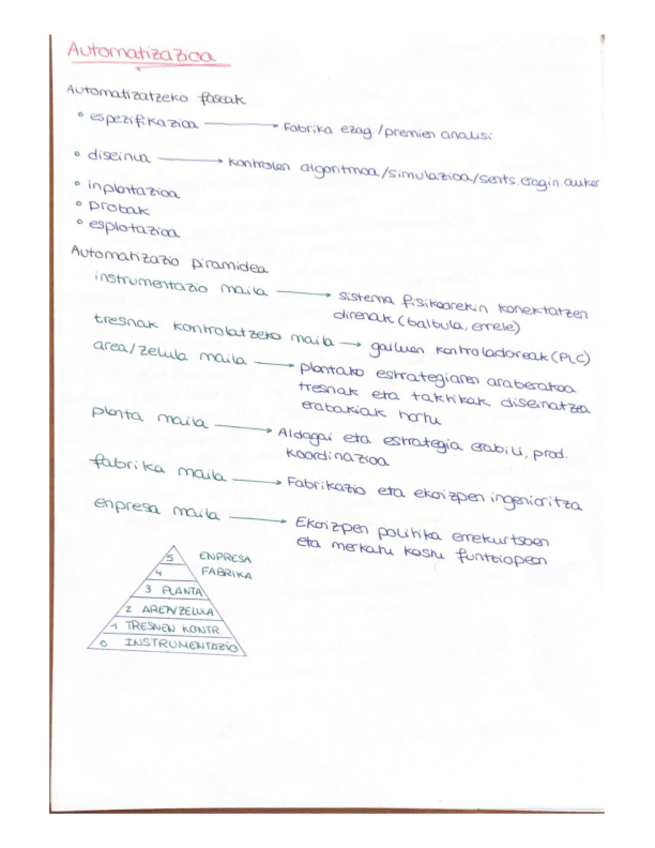 Automatizazioa
Automatizatzeko faseak
• espezifikazioa → Fabrika ezag/premien analisi
• diseinua → kontrolen algoritmoa/simulazioa/sents.eragin.auker
• inplantazioa
• probak
• esplotazioa
Automatizazio piramidea
instrumentazio maila → sistema fisikoarekin konektatzen
direnak (balbula, errele)
tresnak kontrolatzeko maila → gailuen kontroladoreak (PLC)
area/zelula maila → plantako estrategiaren araberakoa
tresnak eta taktikak diseinatzea
erabakiak hartu
planta maila → Aldagai eta estrategia erabili, prod.
koordinazioa
fabrika maila → Fabrikazio eta ekoizpen ingenioritza
enpresa maila → Ekoizpen politika errekurtsoen
eta merkatu kostu funtziopean
5 ENPRESA
4 FABRIKA
3 PLANTA
2 AREA/ZELULA
1 TRESNEN KONTR.
0 INSTRUMENTAZIO